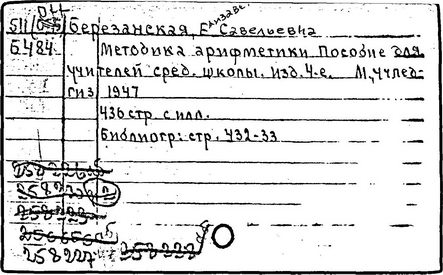 DLL
511(07) Березанская, Елизавета Савельевна
Б484 Методика арифметики. Пособие для
учителей сред. школы. изд. 4-е. М., Учпед-
гиз, 1947
436 стр. с илл.
Библиогр: стр. 432-33
258226
258222
258227 258228